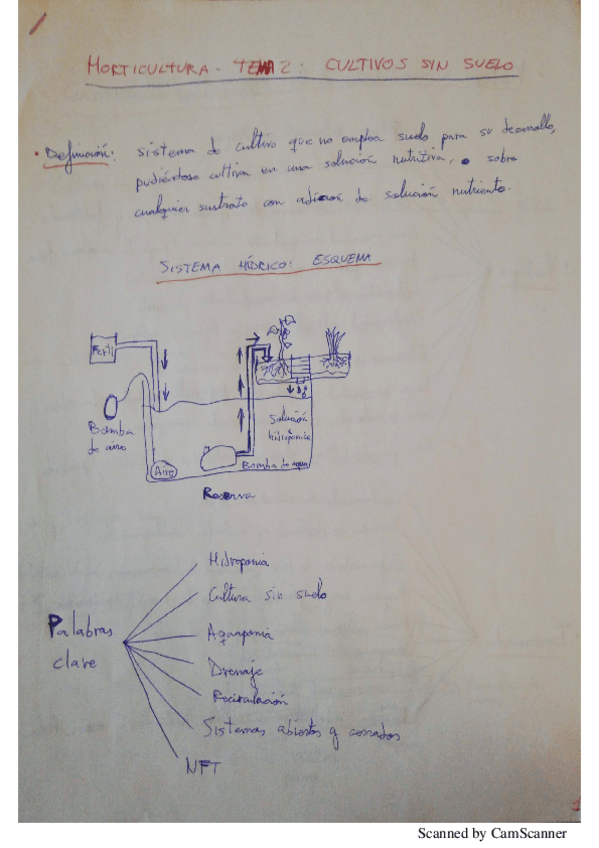 HORTICULTURA - TEMA 2: CULTIVOS SIN SUELO
• Definición: sistema de cultivo que no emplea suelo para su desarrollo,
pudiéndose cultivar en una solución nutritiva, o sobre
cualquier sustrato con adición de solución nutriente.
SISTEMA HÍDRICO: ESQUEMA
Ferti
Bomba
de aire
Aire
Solución
hidropónica
Bomba de agua
Reserva
Palabras
clave
Hidroponia
Cultura sin suelo
Aquaponia
Drenaje
Recirculación
Sistemas abiertos y cerrados
NFT
1
Scanned by CamScanner